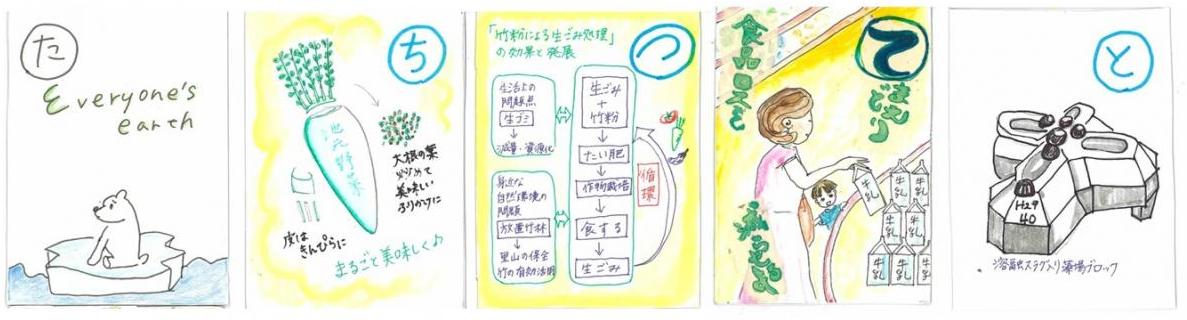 た
Everyone's
earth
ち
地元野菜
大根の葉
炒めて
美味しい
ふりかけに
皮は
きんぴらに
まるごと美味しく♪
つ
「竹粉による生ごみ処理」
の効果と発展
生活上の
問題点
生ゴミ
減量・資源化
身近な
自然環境の
問題
放置竹林
里山の保全
竹の有効活用
生ごみ
+
竹粉
たい肥
作物栽培
食する
生ごみ
循環
て
てまえどり
食品ロスを
減らせるよ
牛乳
牛乳
牛乳
牛乳
牛乳
牛乳
牛乳
牛乳
と
H29
40
溶融スラグ入り藻場ブロック